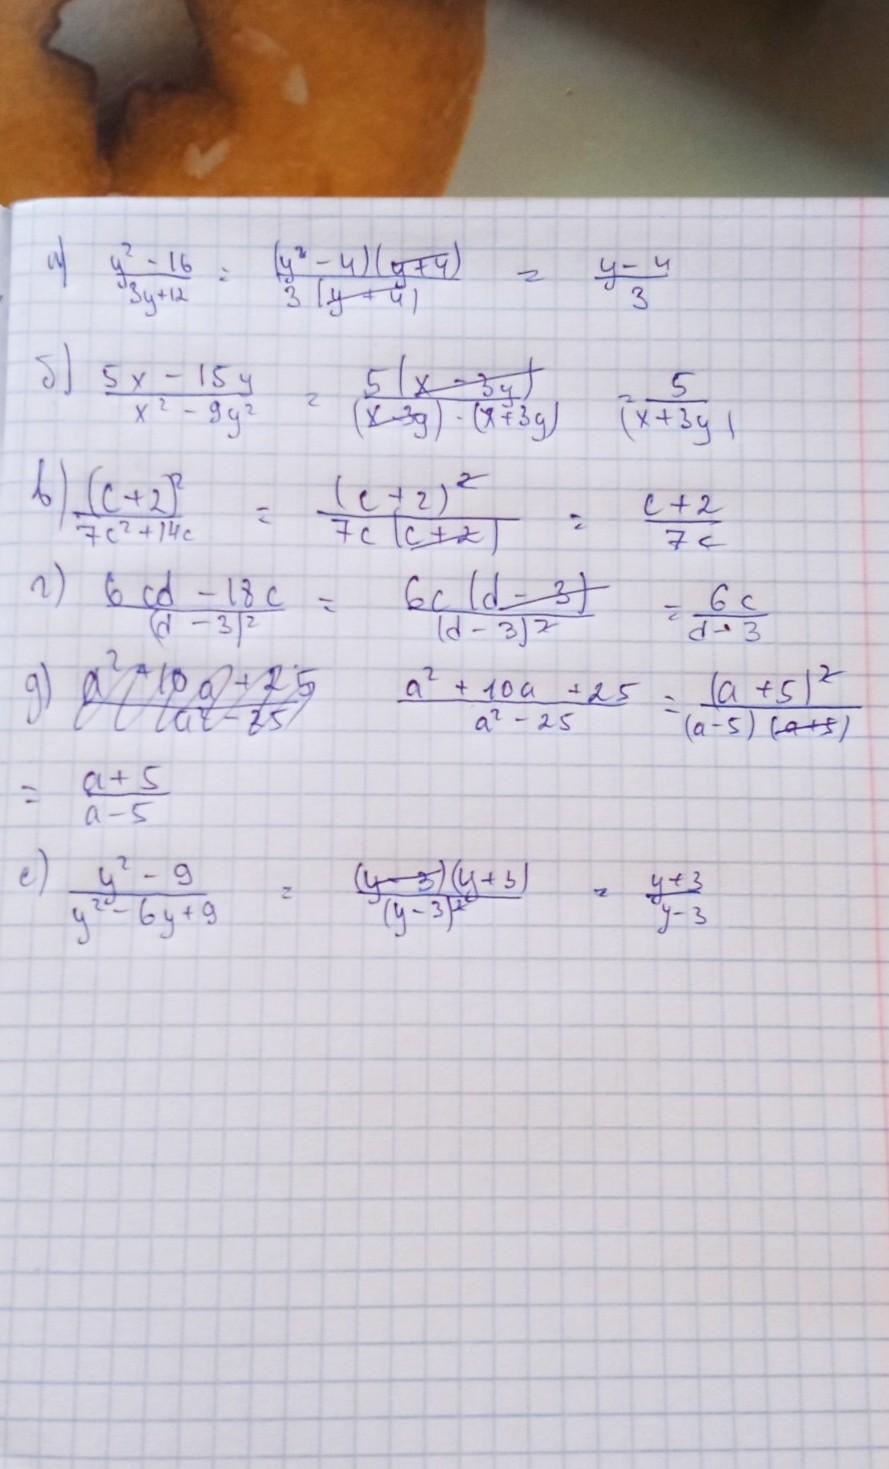 а) (y² - 16)/(3y+12) = ((y² - 4)(y+4))/(3(y+4)) = (y-4)/3
б) (5x - 15y)/(x² - 9y²) = (5(x - 3y))/((x-3y)·(x+3y)) = 5/(x+3y)
в) (c+2)²/(7c²+14c) = (c+2)²/(7c(c+2)) = (c+2)/(7c)
г) (6cd - 18c)/(d-3)² = (6c(d-3))/(d-3)² = 6c/(d-3)
д) (a²+10a+25)/(a²-25) (a² + 10a + 25)/(a² - 25) = (a+5)²/((a-5)(a+5))
= (a+5)/(a-5)
е) (y² - 9)/(y² - 6y + 9) = ((y-3)(y+3))/(y-3)² = (y+3)/(y-3)